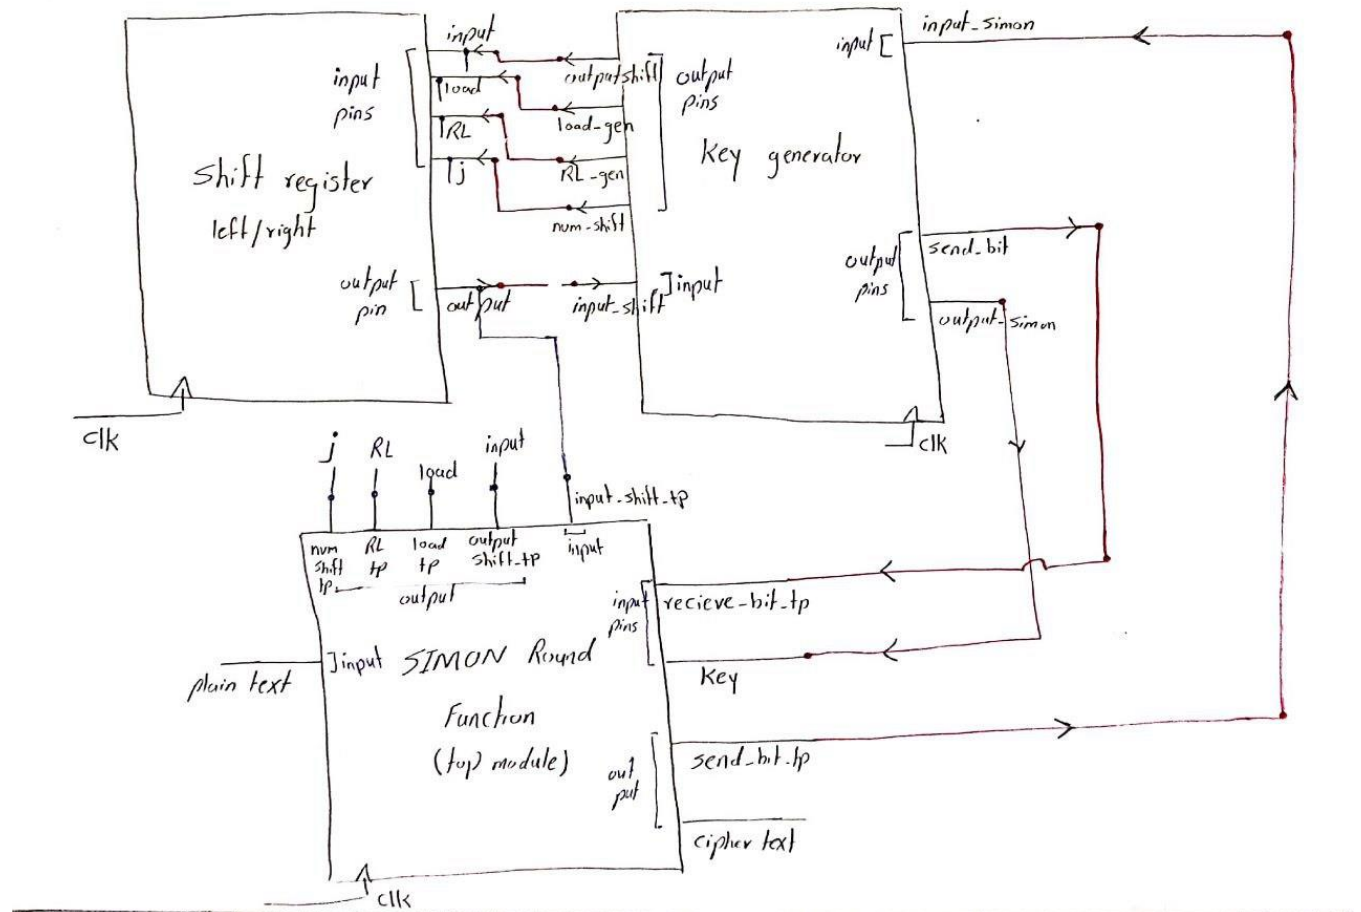 input
input
pins
load
RL
j
Shift register
left/right
output
pin
output
clk
outputshift
load-gen
RL-gen
num-shift
output
pins
Key generator
input_shift
input
input
input_simon
output
pins
send_bit
output_simon
clk
j
RL
load
input
input-shift-tp
num
shift
tp
RL
tp
load
tp
output
shift-tp
input
output
input
pins
recieve-bit-tp
Key
plain text
input
SIMON Round
Function
(top module)
out
put
send_bit-tp
cipher text
clk